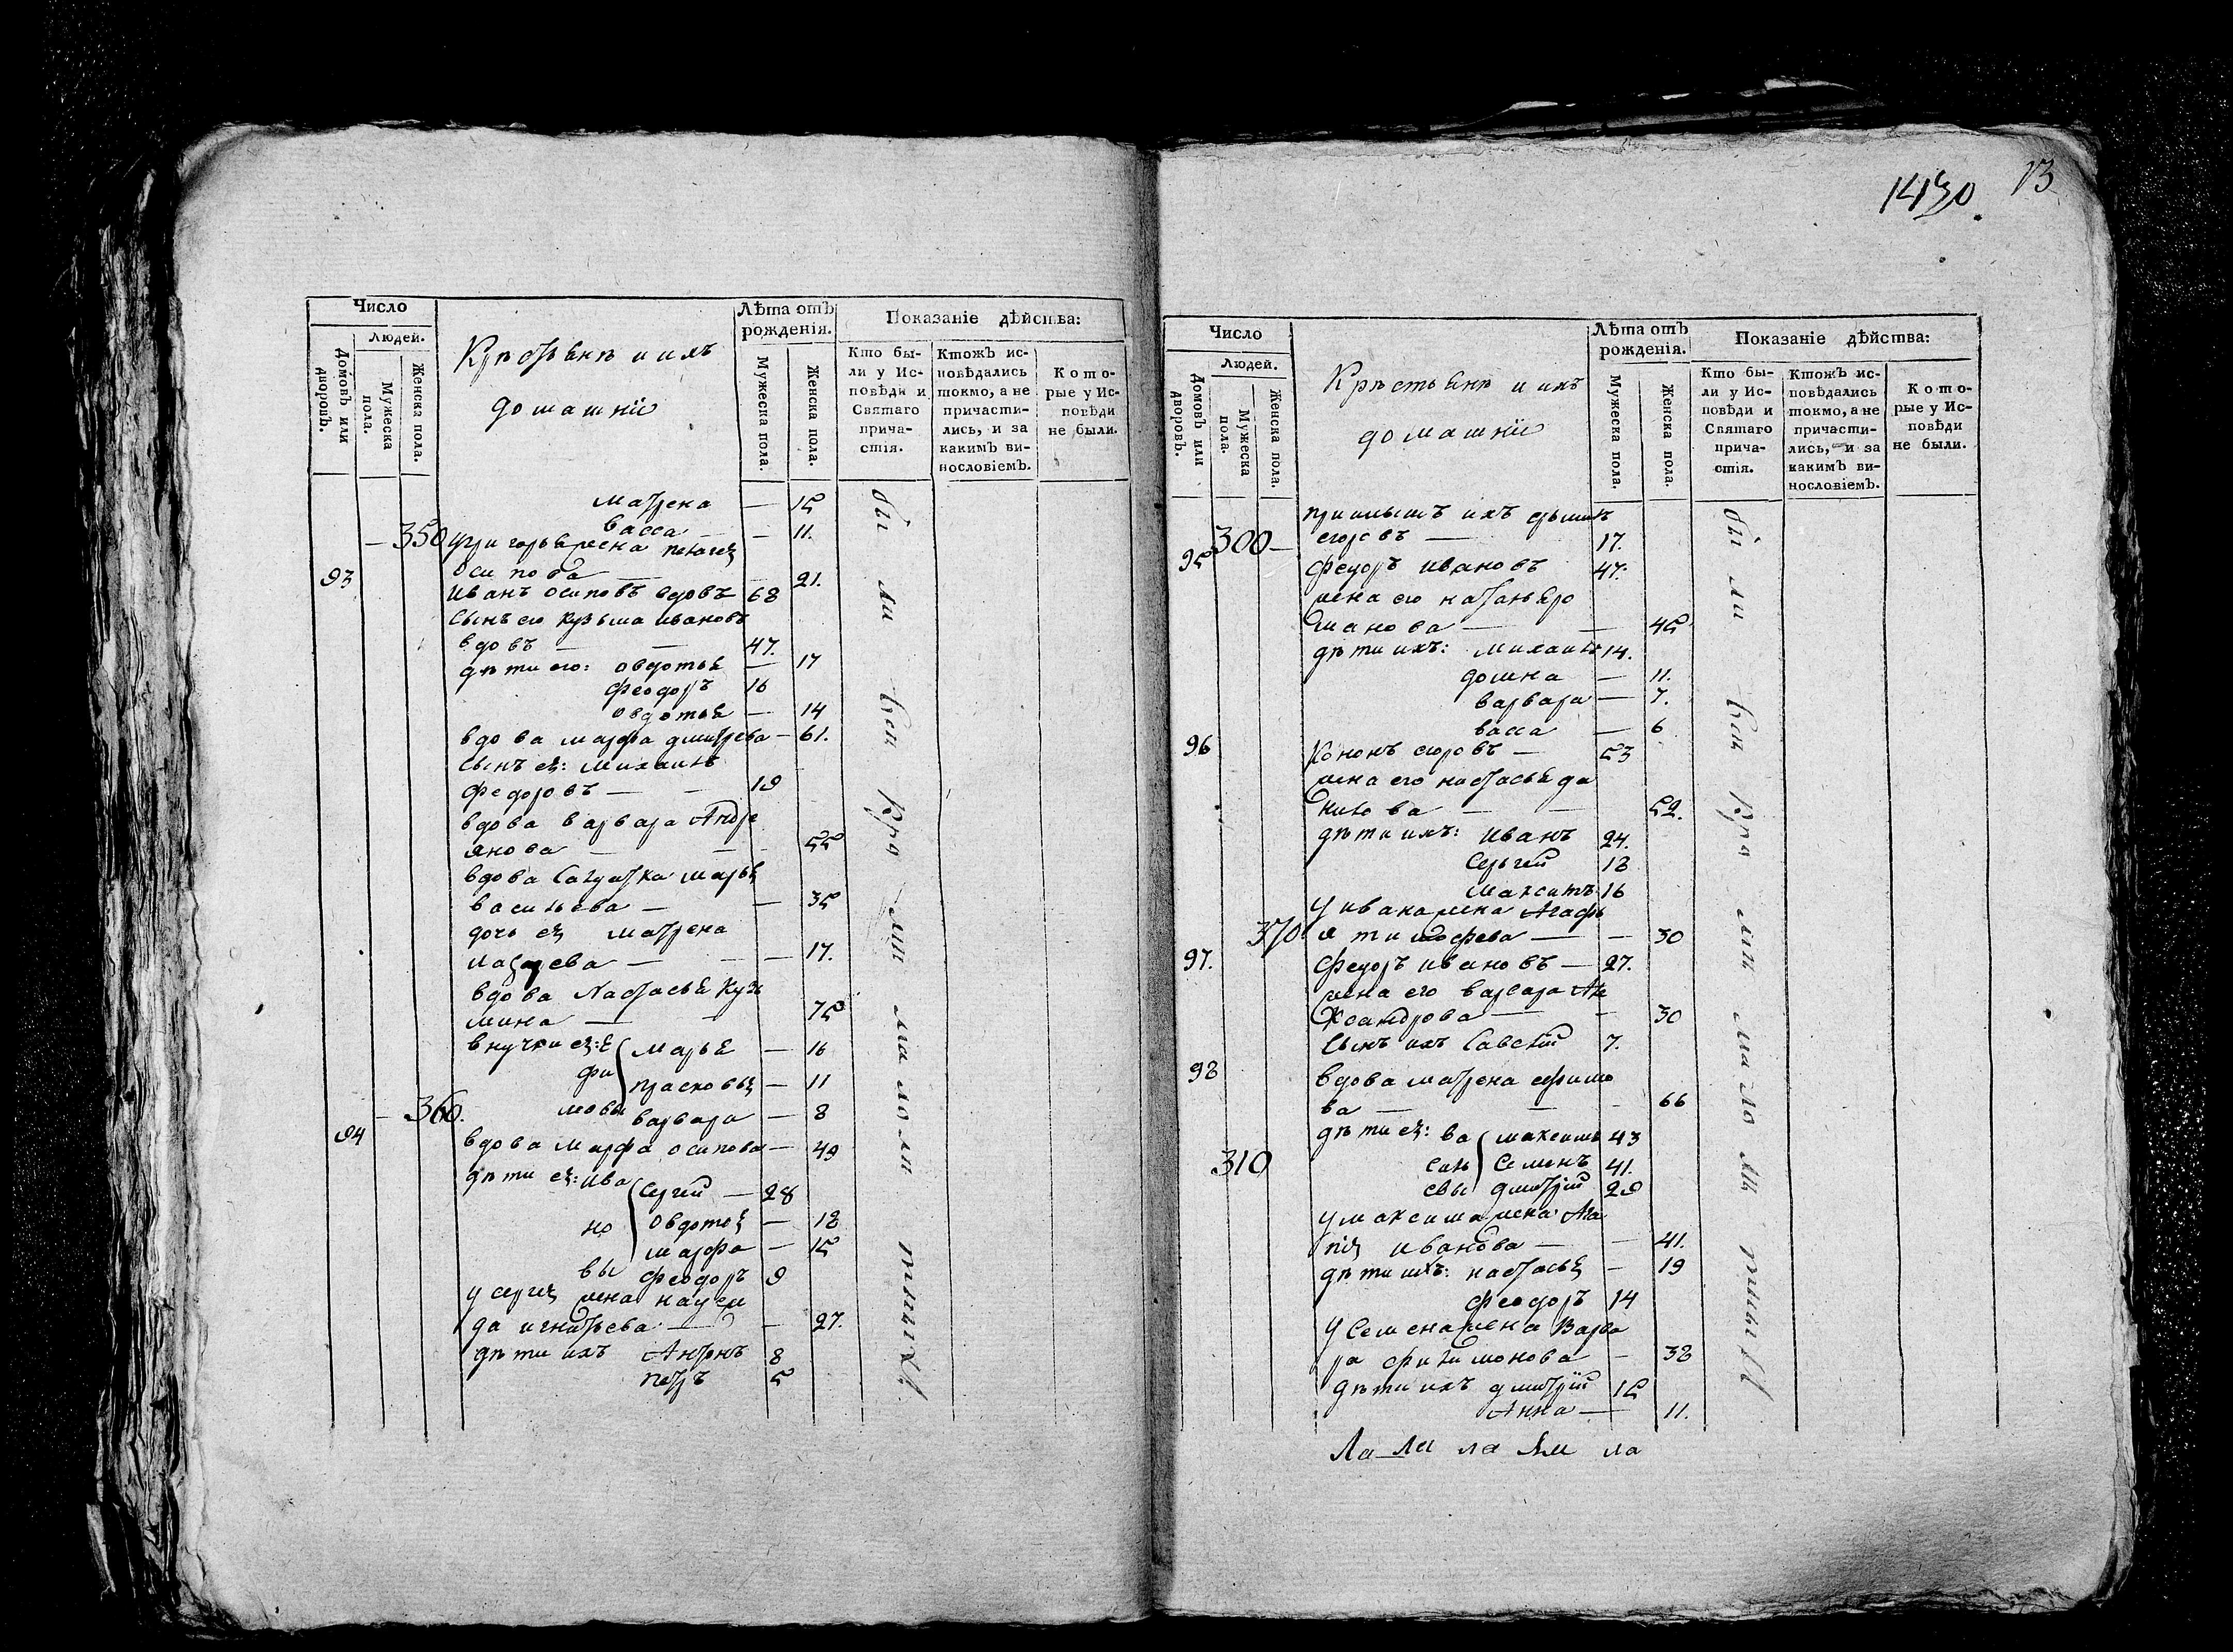 Число
Людей.
Домовъ или дворовъ.
Мужеска пола.
Женска пола.
Крестьяне и ихъ
домашнїи
Лѣта отъ рожденія.
Мужеска пола.
Женска пола.
Показаніе дѣйства:
Кто были у Исповѣди и Святаго причастія.
Ктожъ исповѣдались токмо, а не причастились, и за какимъ винословіемъ.
Которые у Исповѣди не были.
матрена — 15
350 васса — 11.
у григорья жена пелагея
осипова — 21.
93 иванъ осиповъ вдовъ 68
сынъ его кузьма ивановъ
вдовъ — 47.
дѣти его: овдотья — 17
феодоръ 16
овдотья — 14
вдова марфа дмитрева — 61.
сынъ ея: михаилъ
федоровъ — 19
вдова варвара Андре
янова — 55
вдова Салдатка марья
васильева — 35
дочь ея матрена
лазарева — 17.
вдова Настасья Кузь
мина — 75
внучки ея: е марья — 16
фи прасковья — 11
360. мовы варвара — 8
94 вдова марфа осипова — 49
дѣти ея: ива Сергей — 28
но овдотья — 18
марфа — 15
вы феодоръ 9
у сергея жена
да игнатьева — 27.
дѣти ихъ Антонъ 8
петръ 5
бы ли вси кро ми ма ло лѣ тныхъ.
1430. 13
Число
Людей.
Домовъ или дворовъ.
Мужеска пола.
Женска пола.
Крестьяне и ихъ
домашнїи
Лѣта отъ рожденія.
Мужеска пола.
Женска пола.
Показаніе дѣйства:
Кто были у Исповѣди и Святаго причастія.
Ктожъ исповѣдались токмо, а не причастились, и за какимъ винословіемъ.
Которые у Исповѣди не были.
ихъ
300 — егоровъ — 17.
95 федоръ ивановъ 47.
жена его наталья ро
манова — 45
дѣти ихъ: михаилъ 14.
домна — 11.
варвара — 7.
васса — 6
96 Кононъ егоровъ — 53
жена его настасья да
нилова — 52.
дѣти ихъ: иванъ 24.
Сергей 18
максимъ 16
у ивана жена Агафь
370 я тимофева — 30
97. федоръ ивановъ — 27.
жена его варвара Але
ксандрова — 30
сынъ ихъ Савелій 7.
98 вдова матрена ефимо
ва — 66
дѣти ея: ва максимъ 43
310 силь Семенъ 41.
евы дмитрій 29
у максима жена Ага
пія иванова — 41.
дѣти ихъ: настасья — 19
феодоръ 14
у Семена жена Варва
ра филимонова — 38
дѣти ихъ дмитрїй 15
Анна — 11.
бы ли вси кро ми ма ло лѣ тныхъ